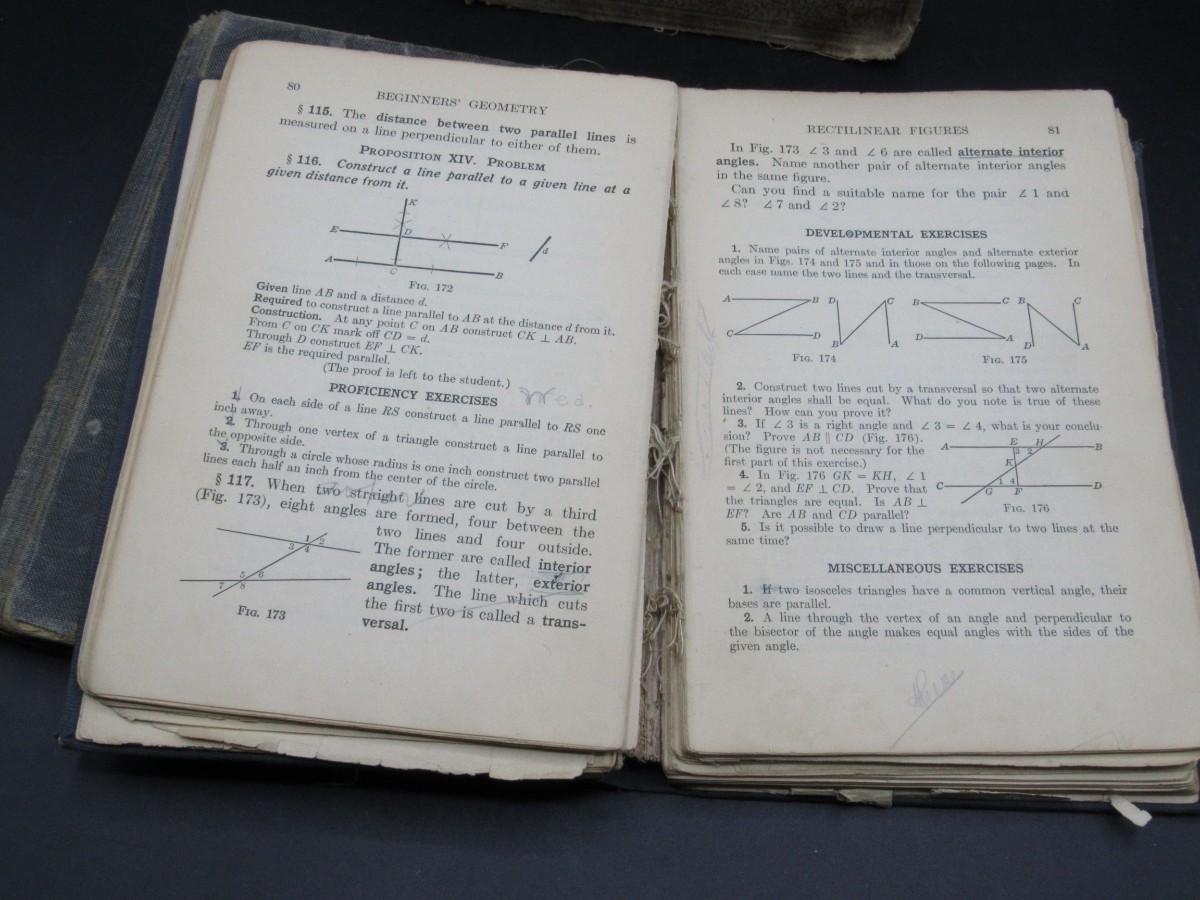 80
BEGINNERS' GEOMETRY
§ 115. The distance between two parallel lines is
measured on a line perpendicular to either of them.
PROPOSITION XIV. PROBLEM
§ 116. Construct a line parallel to a given line at a
given distance from it.
K
E D F
d
A C B
FIG. 172
Given line AB and a distance d.
Required to construct a line parallel to AB at the distance d from it.
Construction. At any point C on AB construct CK ⊥ AB.
From C on CK mark off CD = d.
Through D construct EF ⊥ CK.
EF is the required parallel.
(The proof is left to the student.)
PROFICIENCY EXERCISES Wed.
1. On each side of a line RS construct a line parallel to RS one
inch away.
2. Through one vertex of a triangle construct a line parallel to
the opposite side.
3. Through a circle whose radius is one inch construct two parallel
lines each half an inch from the center of the circle.
§ 117. When two straight lines are cut by a third
(Fig. 173), eight angles are formed, four between the
two lines and four outside.
The former are called interior
angles; the latter, exterior
angles. The line which cuts
the first two is called a trans-
versal.
1 2
3 4
5 6
7 8
FIG. 173
RECTILINEAR FIGURES 81
In Fig. 173 ∠ 3 and ∠ 6 are called alternate interior
angles. Name another pair of alternate interior angles
in the same figure.
Can you find a suitable name for the pair ∠ 1 and
∠ 8? ∠ 7 and ∠ 2?
DEVELOPMENTAL EXERCISES
1. Name pairs of alternate interior angles and alternate exterior
angles in Figs. 174 and 175 and in those on the following pages. In
each case name the two lines and the transversal.
A B D C B C B C
C D B A D A D A
FIG. 174 FIG. 175
2. Construct two lines cut by a transversal so that two alternate
interior angles shall be equal. What do you note is true of these
lines? How can you prove it?
3. If ∠ 3 is a right angle and ∠ 3 = ∠ 4, what is your conclu-
sion? Prove AB ∥ CD (Fig. 176).
(The figure is not necessary for the
first part of this exercise.)
4. In Fig. 176 GK = KH, ∠ 1
= ∠ 2, and EF ⊥ CD. Prove that
the triangles are equal. Is AB ⊥
EF? Are AB and CD parallel?
E H
A B
3 2
K
1 4
C D
G F
FIG. 176
5. Is it possible to draw a line perpendicular to two lines at the
same time?
MISCELLANEOUS EXERCISES
1. If two isosceles triangles have a common vertical angle, their
bases are parallel.
2. A line through the vertex of an angle and perpendicular to
the bisector of the angle makes equal angles with the sides of the
given angle.